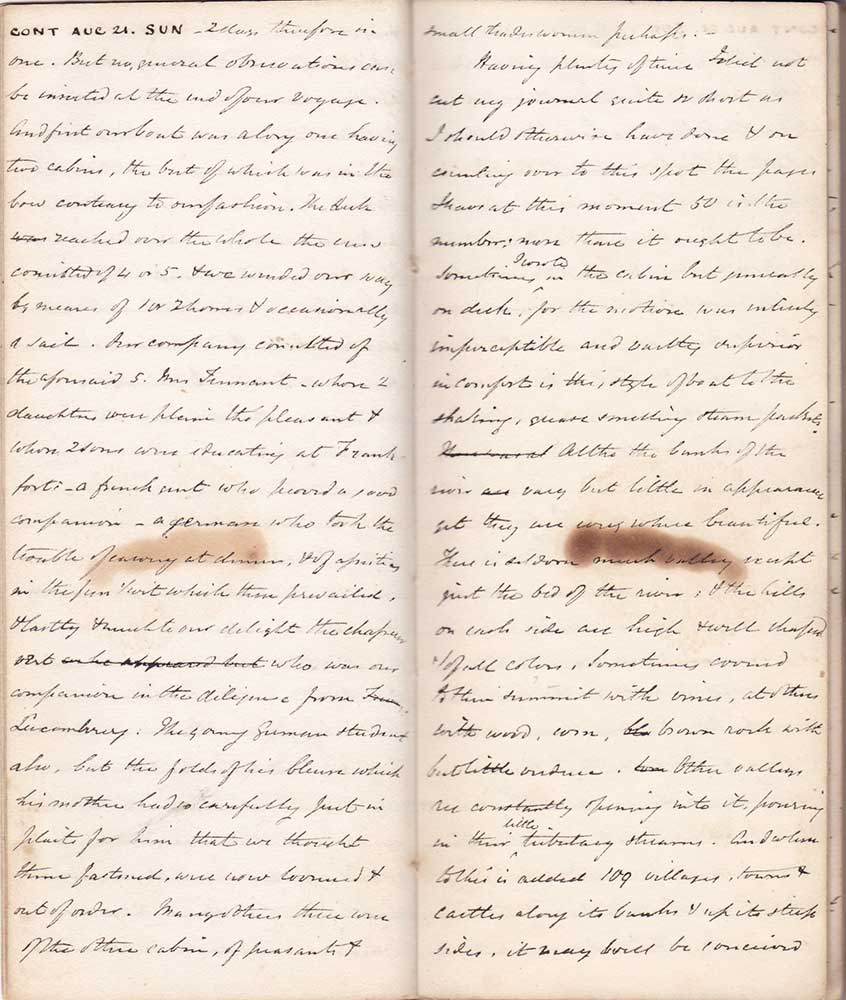 CONT AUG 21. SUN – 2 days therefore in
one. But no, general observations can
be inserted at the end of our voyage.
And first our boat was a long one having
two cabins, the best of which was in the
bow contrary to our fashion. The deck
was reached over the whole the crew
consisted of 4 or 5. & we winded our way
by means of 1 or 2 horses & occasionally
a sail. Our company consisted of
the aforesaid 5. Mrs Tennant – whose 2
daughters were plain tho pleasant &
whose 2 sons were educating at Frank-
fort – a french gent who proved a good
companion – a german who took the
trouble of carving at dinner, & of assisting
in the fun & wit which there prevailed,
& lastly & much to our delight the chapeau
vert as he appeared but who was our
companion in the diligence from
Luxembourg. The young German student
also, but the folds of his blouse which
his mother had so carefully put in
plaits for him that we thought
them fastened, were now loosened &
out of order. Many others there were
of the other cabin, of peasants &
small tradeswomen perhaps. –
Having plenty of time I did not
cut my journal quite so short as
I should otherwise have done & on
counting over to this spot the pages
I have at this moment 50 is the
number; more than it ought to be.
Sometimes I wrote in the cabin but generally
on deck, for the motion was entirely
imperceptible and vastly superior
in comfort is this style of boat to the
shaking, grease smelling steam packets.
Altho the banks of the
river vary but little in appearance
yet they are every where beautiful.
There is seldom much valley except
just the bed of the river; & the hills
on each side are high & well shaped
& of all colors, sometimes covered
to their summit with vines, at others
with wood, corn, brown rock with
but little verdure. Other valleys
are constantly opening into it, pouring
in their little tributary streams. And when
to this is added 109 villages, towns &
castles along its banks & up its steep
sides, it may well be conceived